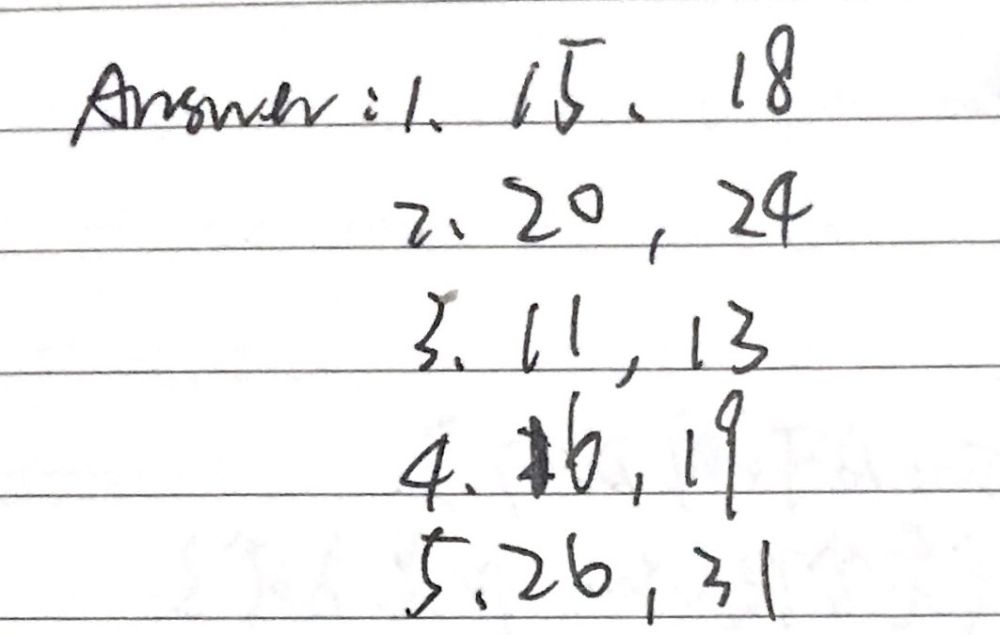 Answer:1、15、18
2、20,24
3.11,13
4.16,19
5.26,31